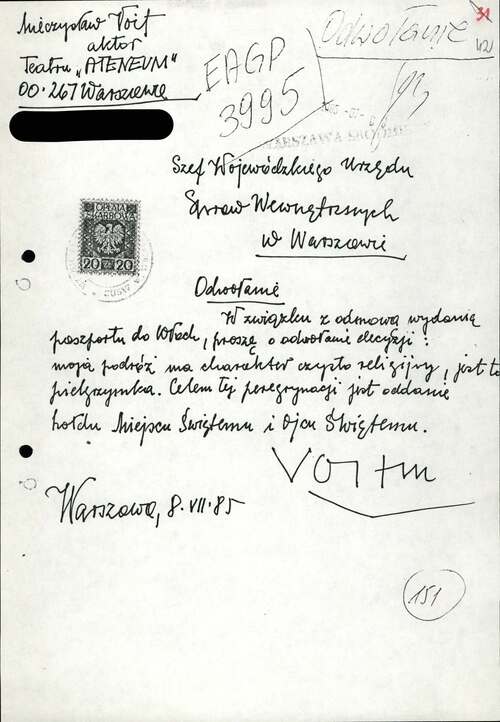 Mieczysław Voit
aktor
Teatru „ATENEUM"
00-267 Warszawie
Odwołanie
31
EAGP
3995
WARSZAWA
Szef Wojewódzkiego Urzędu
Spraw Wewnętrznych
w Warszawie
OPŁATA
SKARBOWA
20 ZŁ 20
Odwołanie
W związku z odmową wydania
paszportu do Włoch, proszę o odwołanie decyzji:
moja podróż ma charakter czysto religijny, jest to
pielgrzymka. Celem tej peregrynacji jest oddanie
hołdu Miejscu Świętemu i Ojcu Świętemu.
Warszawa, 8.VII.85
151